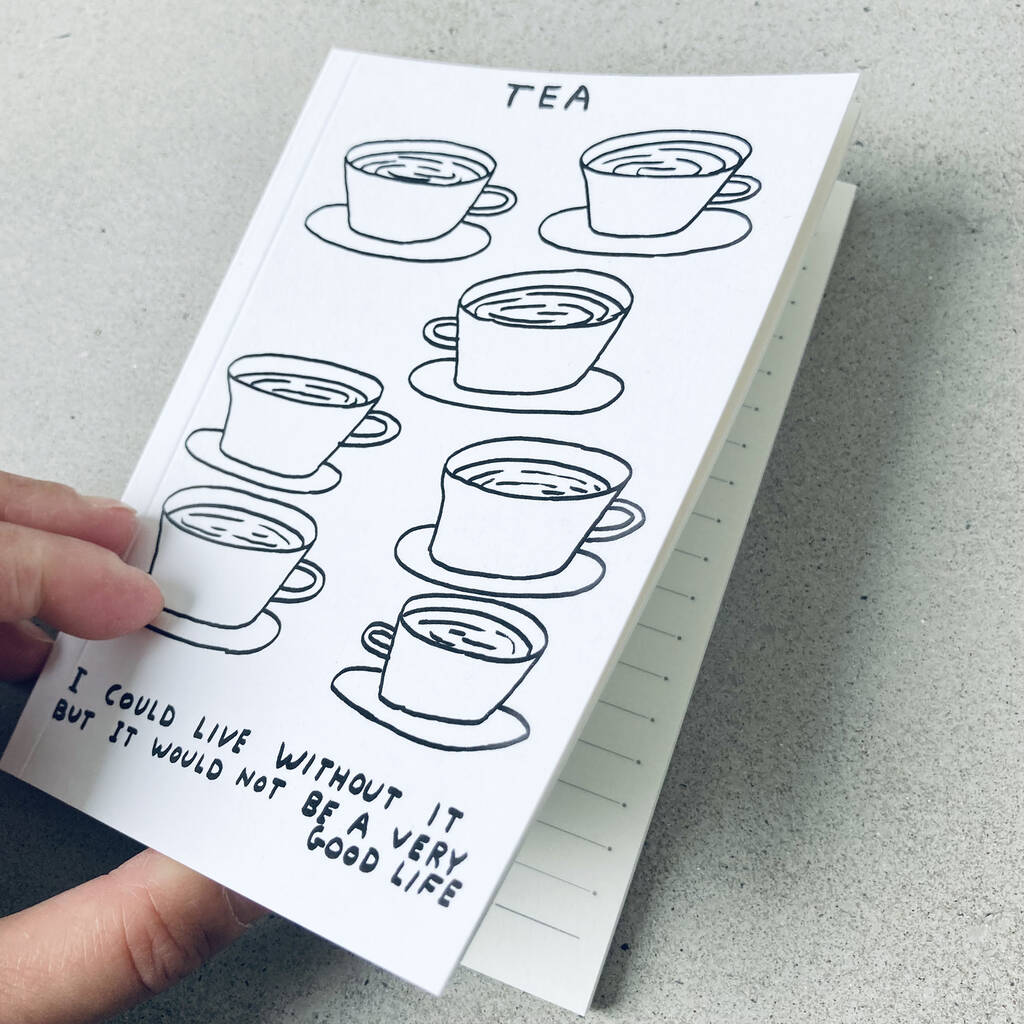 TEA
I COULD LIVE WITHOUT IT
BUT IT WOULD NOT BE A VERY
GOOD LIFE